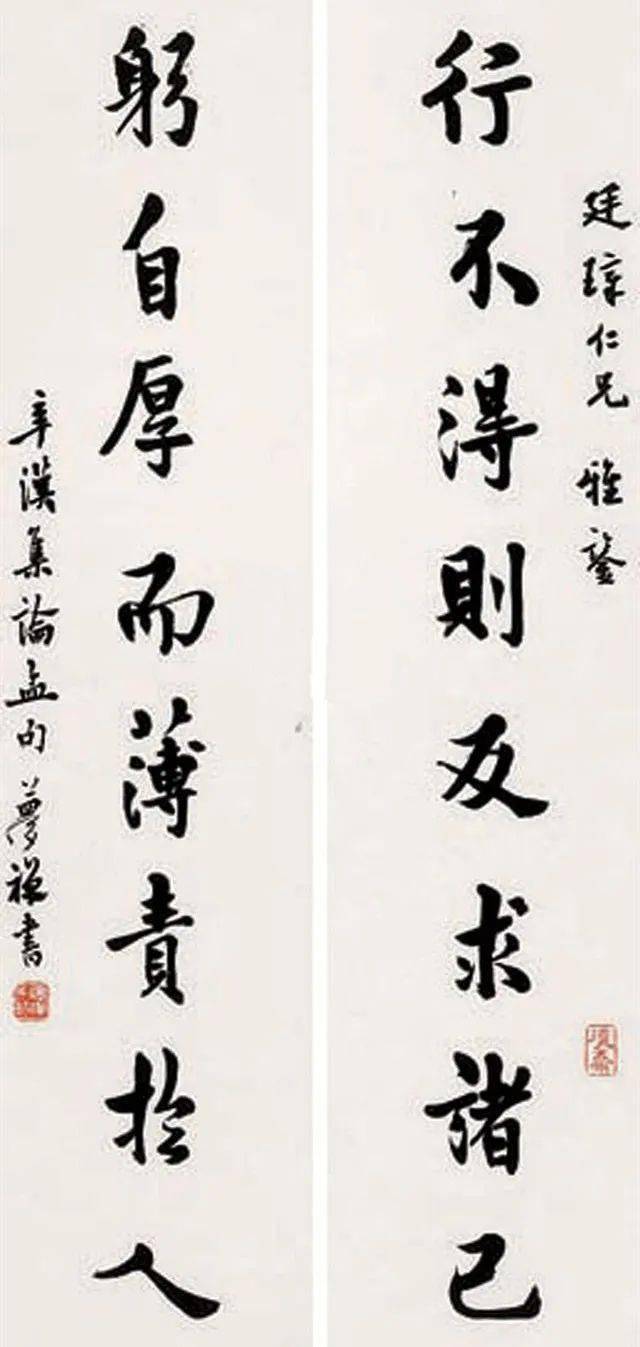 廷璋仁兄 雅鑒
行不得則反求諸己
躬自厚而薄責於人
辛漢集論孟句 夢書